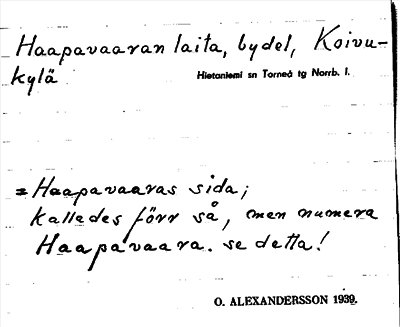 Haapavaaran laita, bydel, Koivu-
kylä
Hietaniemi sn Torneå tg Norrb. l.
= Haapavaaras sida;
kallades förr så, men numera
Haapavaara. se detta!
O. ALEXANDERSSON 1939.